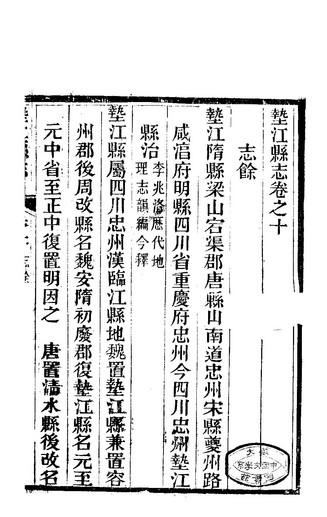 墊江縣志卷之十
志餘
墊江隋縣梁山宕渠郡唐縣山南道忠州宋縣夔州路
咸淳府明縣四川省重慶府忠州今四川忠州墊江
縣治 李兆洛厯代地
理志韻編今釋
墊江縣屬四川忠州漢臨江縣地魏置墊江縣兼置容
州郡後周改縣名魏安隋初廢郡復墊江縣名元至
元中省至正中復置明因之 唐置清水縣後改名